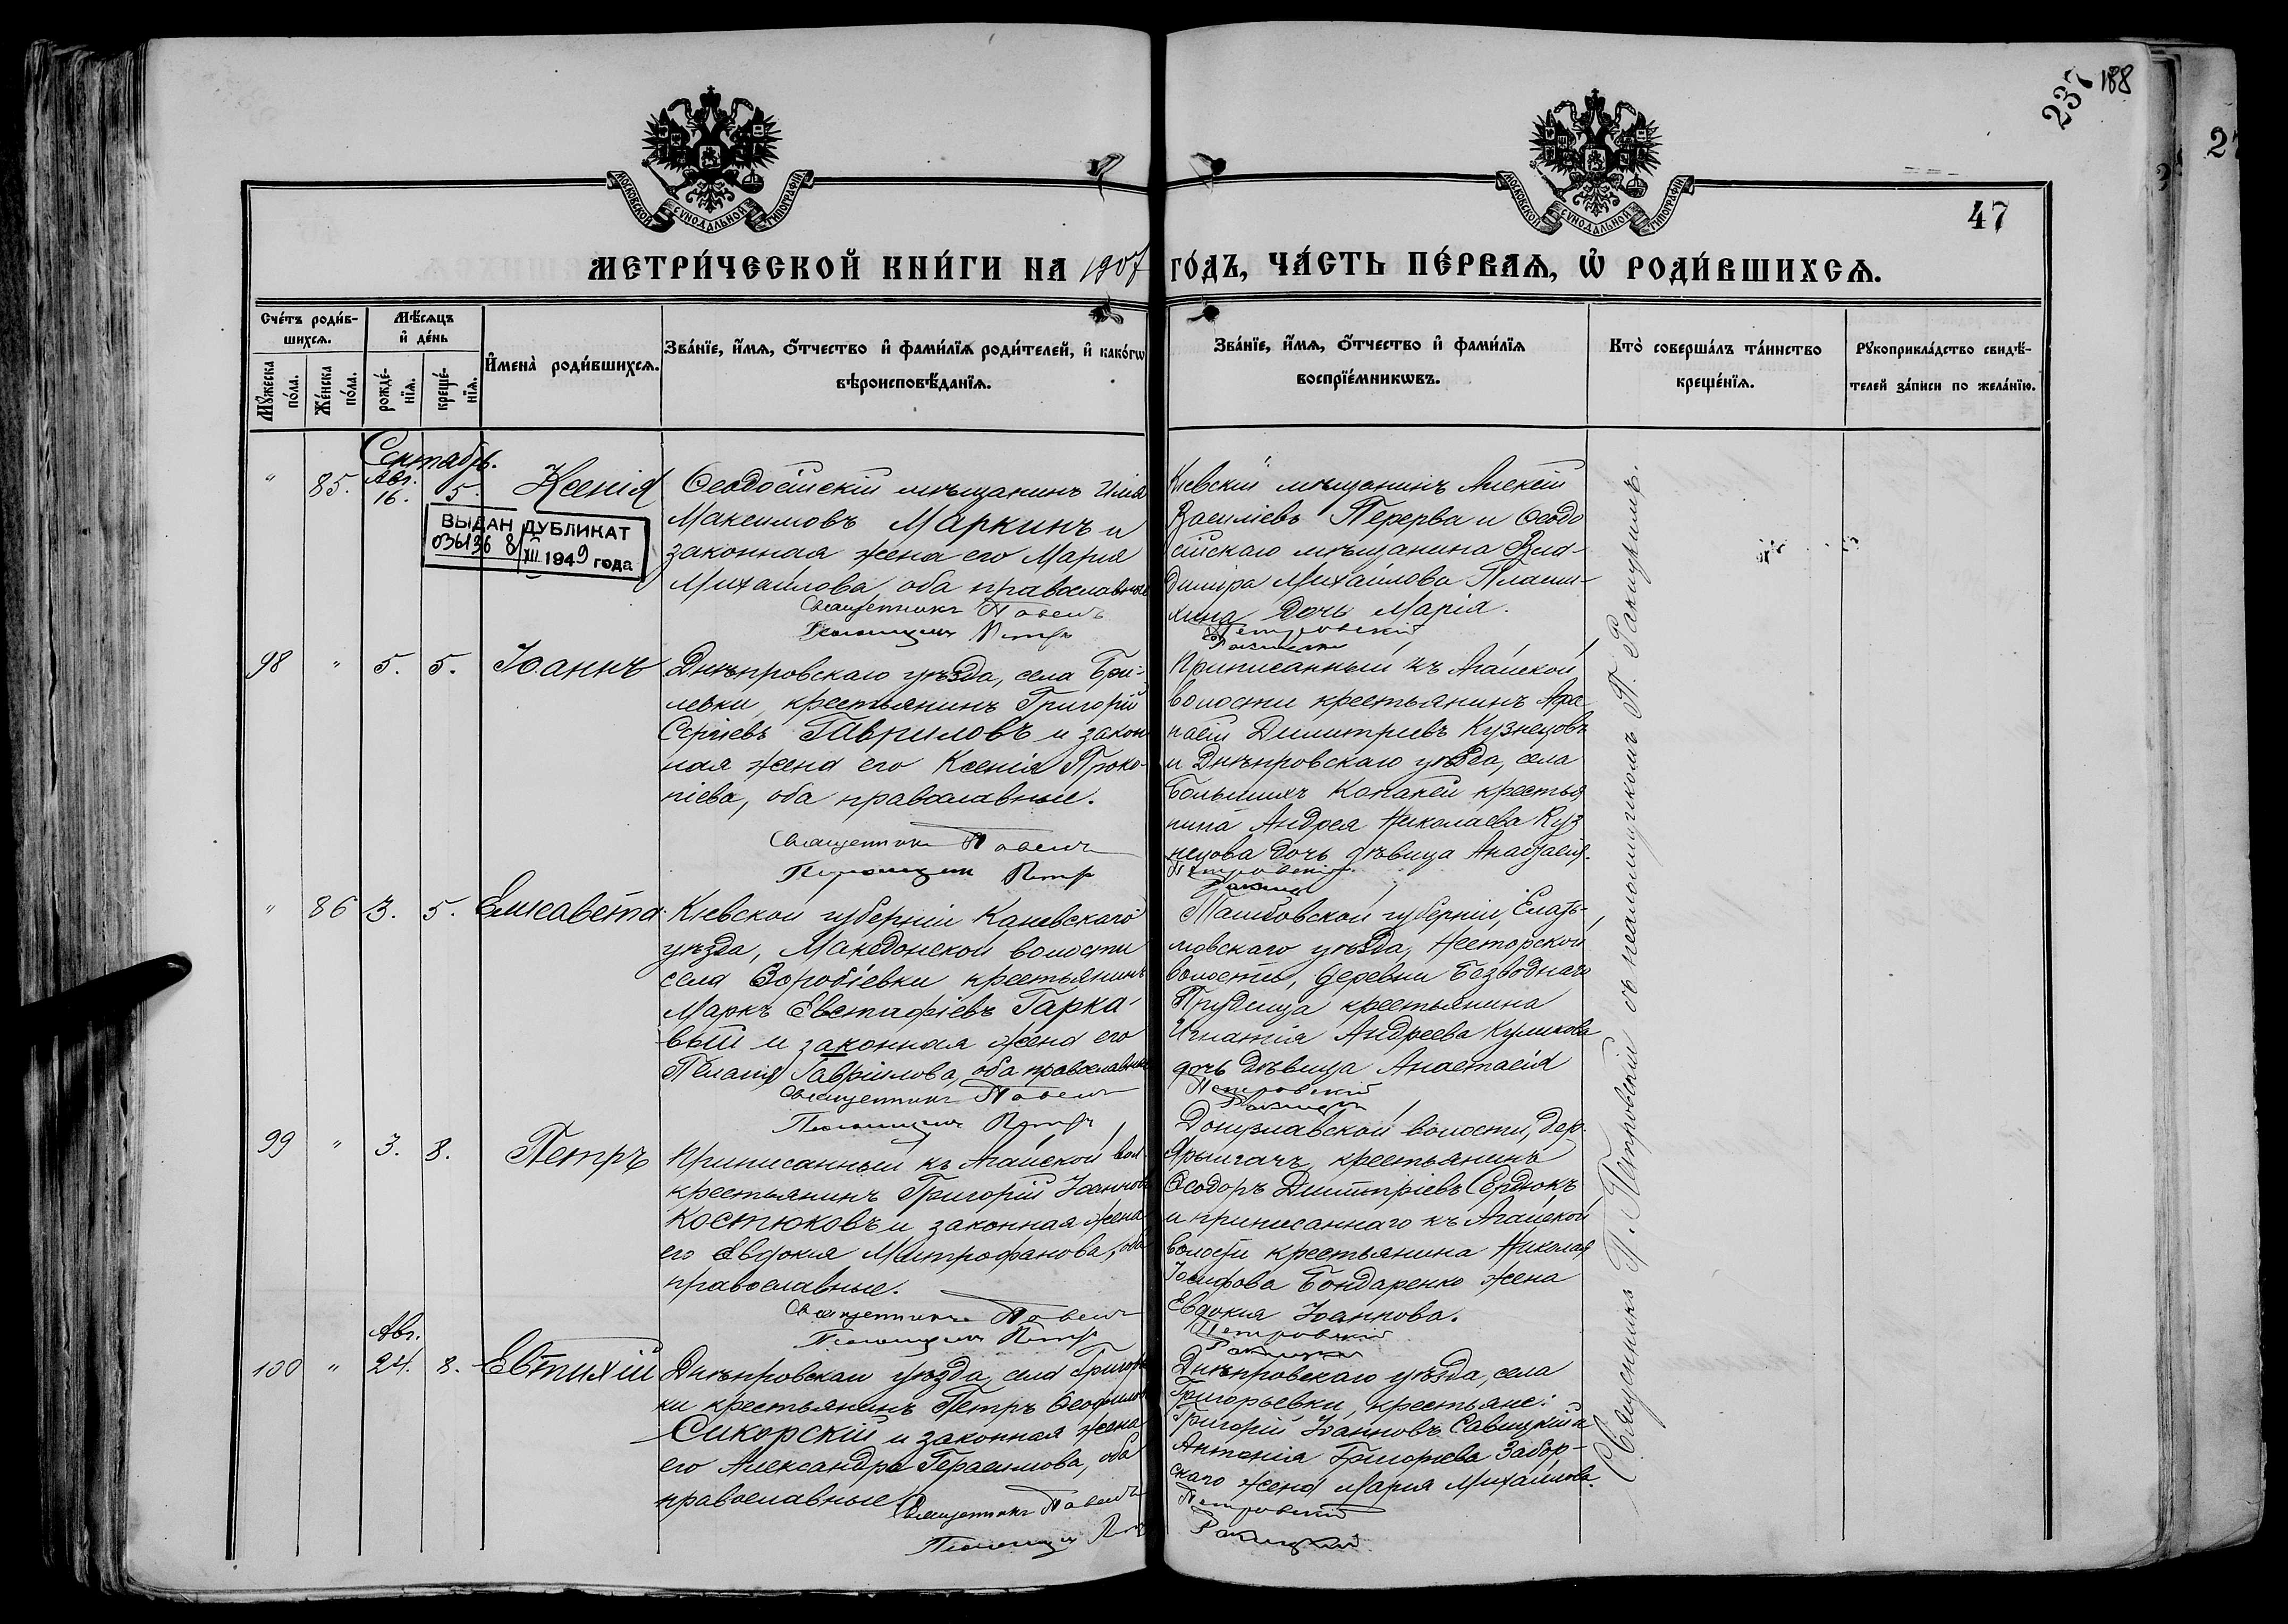 237 188
47
МОСКОВСКОЙ СѴНОДАЛЬНОЙ ТИПОГРАФІИ
МОСКОВСКОЙ СѴНОДАЛЬНОЙ ТИПОГРАФІИ
МЕТРИ́ЧЕСКОЙ КНИ́ГИ НА 1907 ГО́ДЪ, ЧА́СТЬ ПЕ́РВАѦ, Ѡ҆ РОДИ́ВШИХСѦ.
Сче́тъ роди́в-
шихсѧ.
Мꙋ́жеска по́ла.
Же́нска по́ла.
Мѣ́сѧцъ и҆ де́нь
рожде́-нїѧ.
креще́-нїѧ.
И҆мена̀ роди́вшихсѧ.
Зва́нїе, и҆́мѧ, ѻ҆́тчество и҆ фами́лїѧ роди́телей, и҆ како́гѡ
вѣроисповѣ́данїѧ.
Зва́нїе, и҆́мѧ, ѻ҆́тчество и҆ фами́лїѧ
воспрїе́мникѡвъ.
Кто̀ соверша́лъ та́инство
креще́нїѧ.
Рꙋкоприкла́дство свидѣ́-
телей за́писи по жела́нїю.
Сентябрь.
" 85. Авг. 16. 5. Ксенія
ВЫДАН ДУБЛИКАТ
036136 8/XII 1949 года
Ѳеодосійскій мѣщанинъ Илія
Максимовъ Маркинъ и
законная жена его Марія
Михайлова, оба православные
Священникъ Павелъ
Псаломщикъ Петръ
Кіевскій мѣщанинъ Алексій
Василіевъ Перерва и Ѳеодо
сійскаго мѣщанина Вла-
диміра Михайлова
дочь Марія.
Петровскій
Ракицкій
98 " 5. 5. Іоаннъ
Днѣпровскаго уѣзда, села Бри-
левки, крестьянинъ Григорій
Сергіевъ Гавриловъ и закон
ная жена его Ксенія Проко-
піева, оба православные.
Священникъ Павелъ
Псаломщикъ Петръ
Приписанный къ Агайской
волости крестьянинъ
Димитріевъ Кузнецовъ
и Днѣпровскаго уѣзда, села
Большихъ Копаней крестья
нина Андрея Николаева Куз
нецова дочь дѣвица Анастасія.
Петровскій
Ракицкій
" 86 3. 5. Елисавета
Кіевской губерніи Каневскаго
уѣзда, Македонской волости
села Воробіевки крестьянинъ
Маркъ Евстафіевъ Гарка-
вый и законная жена его
Пелагія Гавріилова, оба православные
Священникъ Павелъ
Псаломщикъ Петръ
Тамбовской губерніи, Елать-
мовскаго уѣзда, Несторской
волости, деревни Безводнаго
Прудища крестьянина
Игнатія Андреева Куликова
дочь дѣвица Анастасія
Петровскій
Ракицкій
99 " 3. 8. Петръ
Приписанный къ Агайской вол
крестьянинъ Григорій Іоанновъ
Костюковъ и законная жена
его Евдокія Митрофанова, оба
православные.
Священникъ Павелъ
Псаломщикъ Петръ
Донузлавской волости, дер.
Ярылгачъ, крестьянинъ
Ѳеодоръ Димитріевъ Сердюкъ
и приписаннаго къ Агайской
волости крестьянина Николая
Іосифова Бондаренко жена
Евдокія Іоаннова.
Петровскій
Ракицкій
100 " Авг. 24. 8. Евтихій
Днѣпровскаго уѣзда, села Григорьев
ки крестьянинъ Петръ Ѳеофиловъ
Сикорскій и законная жена
его Александра Герасимова, оба
православные
Священникъ Павелъ
Псаломщикъ Петръ
Днѣпровскаго уѣзда, села
Григорьевки, крестьяне:
Григорій Іоанновъ Савицкій и
Антонія Григорьева Забор-
скаго жена Марія Михайлова.
Петровскій
Ракицкій
Священникъ П. Петровскій съ псаломщикомъ П. Ракицкимъ.